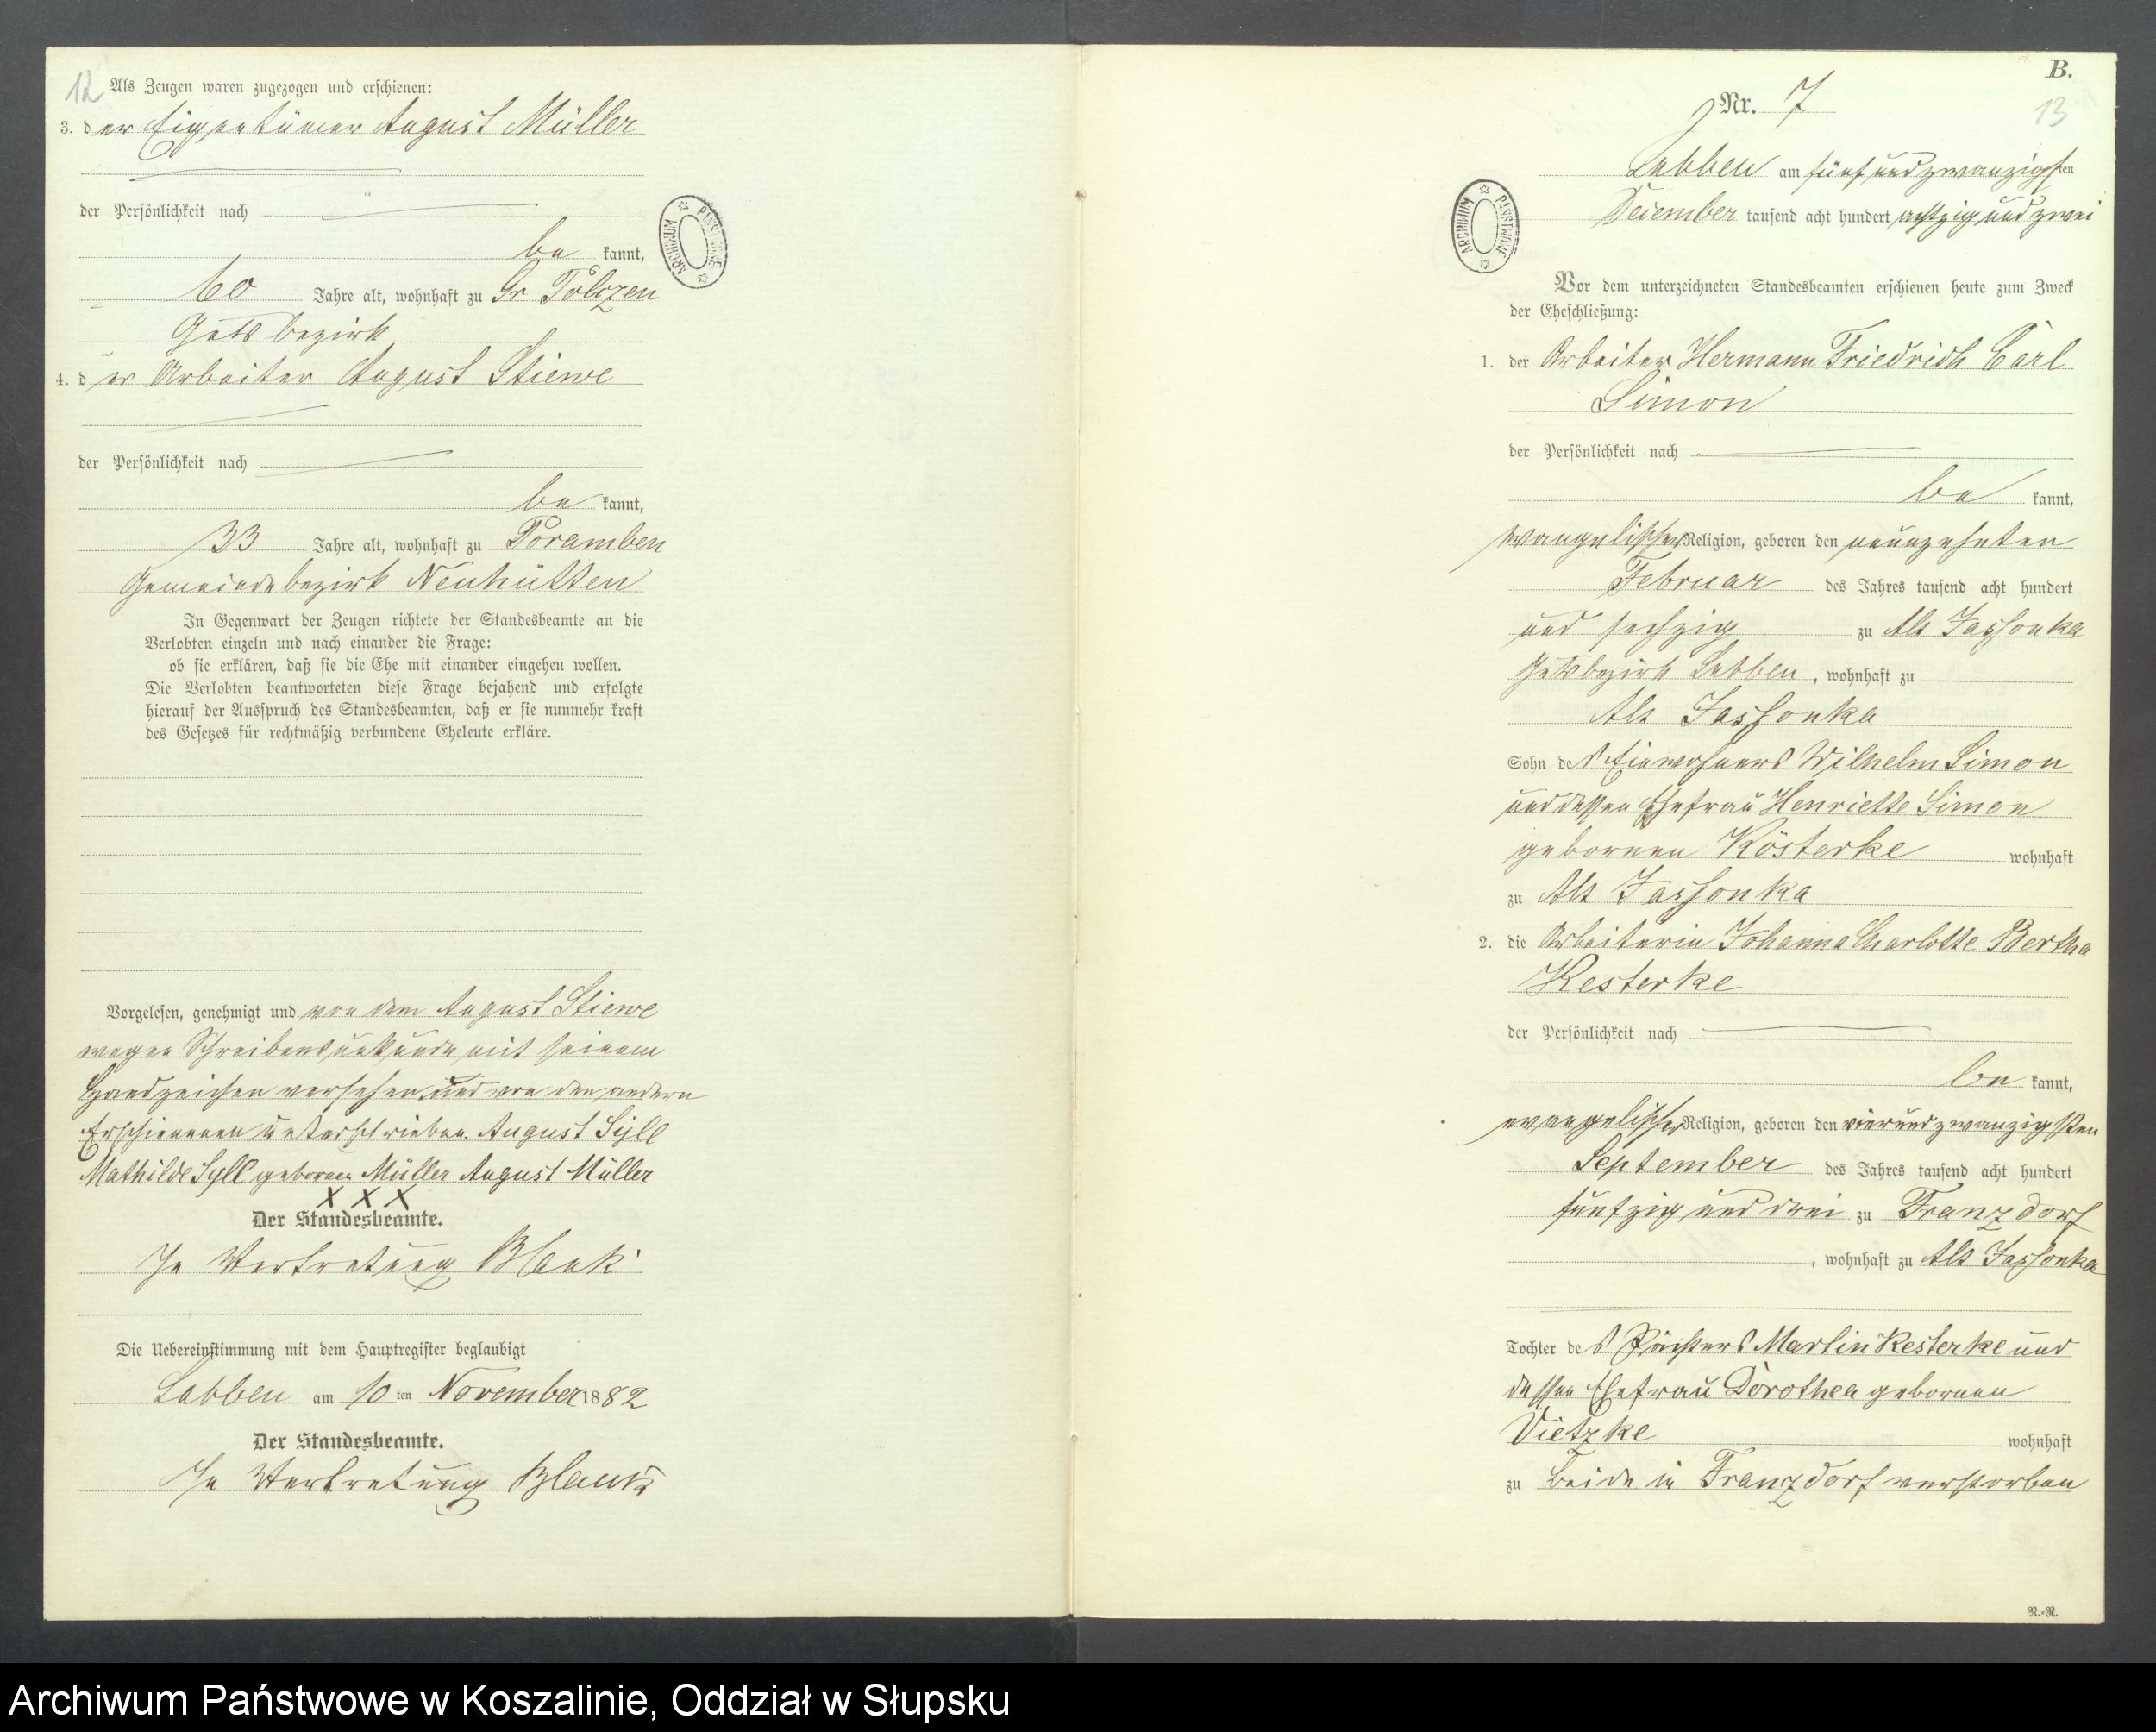 12
Als Zeugen waren zugezogen und erschienen:
3. der Eigentümer August Müller
der Persönlichkeit nach
be kannt,
60 Jahre alt, wohnhaft zu Gr
Gutsbezirk
4. der Arbeiter August Stiewe
der Persönlichkeit nach
be kannt,
33 Jahre alt, wohnhaft zu Poramben
Gemeindebezirk Neuhütten
In Gegenwart der Zeugen richtete der Standesbeamte an die
Verlobten einzeln und nach einander die Frage:
ob sie erklären, daß sie die Ehe mit einander eingehen wollen.
Die Verlobten beantworteten diese Frage bejahend und erfolgte
hierauf der Ausspruch des Standesbeamten, daß er sie nunmehr kraft
des Gesetzes für rechtmäßig verbundene Eheleute erkläre.
Vorgelesen, genehmigt und von dem August Stiewe
wegen Schreibensunkunde mit seinem
Handzeichen versehen und von den andern
Erschienenen unterschrieben. August Syll
Mathilde Syll geborene Müller August Müller
XXX
Der Standesbeamte.
In Vertretung Blank
Die Uebereinstimmung mit dem Hauptregister beglaubigt
Labben am 10ten November 1882
Der Standesbeamte.
In Vertretung Blank
B.
13
Nr. 7
Labben am fünf und zwanzigsten
Dezember tausend acht hundert achtzig und zwei
Vor dem unterzeichneten Standesbeamten erschienen heute zum Zweck
der Eheschließung:
1. der Arbeiter Hermann Friedrich Carl
Simon
der Persönlichkeit nach
be kannt,
evangelischer Religion, geboren den neunzehnten
Februar des Jahres tausend acht hundert
und sechzig zu Alt Jassonka
Gutsbezirk Labben, wohnhaft zu
Alt Jassonka
Sohn des Einwohners Wilhelm Simon
und dessen Ehefrau Henriette Simon
geborenen Kösterke wohnhaft
zu Alt Jassonka
2. die Arbeiterin Johanna Charlotte Bertha
Kesterke
der Persönlichkeit nach
be kannt,
evangelischer Religion, geboren den vierundzwanzigsten
September des Jahres tausend acht hundert
fünfzig und drei zu Franzdorf
, wohnhaft zu Alt Jassonka
Tochter des Pächters Martin Kesterke und
dessen Ehefrau Dorothea geborenen
Vietzke wohnhaft
zu beide in Franzdorf verstorben
N.-N.
ARCHIWUM PAŃSTWOWE
ARCHIWUM PAŃSTWOWE
Archiwum Państwowe w Koszalinie, Oddział w Słupsku